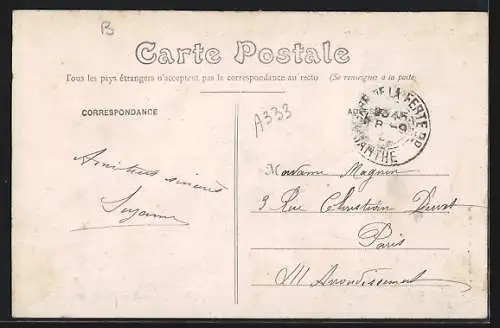 B
Carte Postale
Tous les pays étrangers n'acceptent pas la correspondance au recto (Se renseigner à la poste)
CORRESPONDANCE
A333
DE LA FERTÉ
SARTHE
Amitiés sincères
Suzanne
Madame Magnin
9 Rue Christian
Paris
Arrondissement